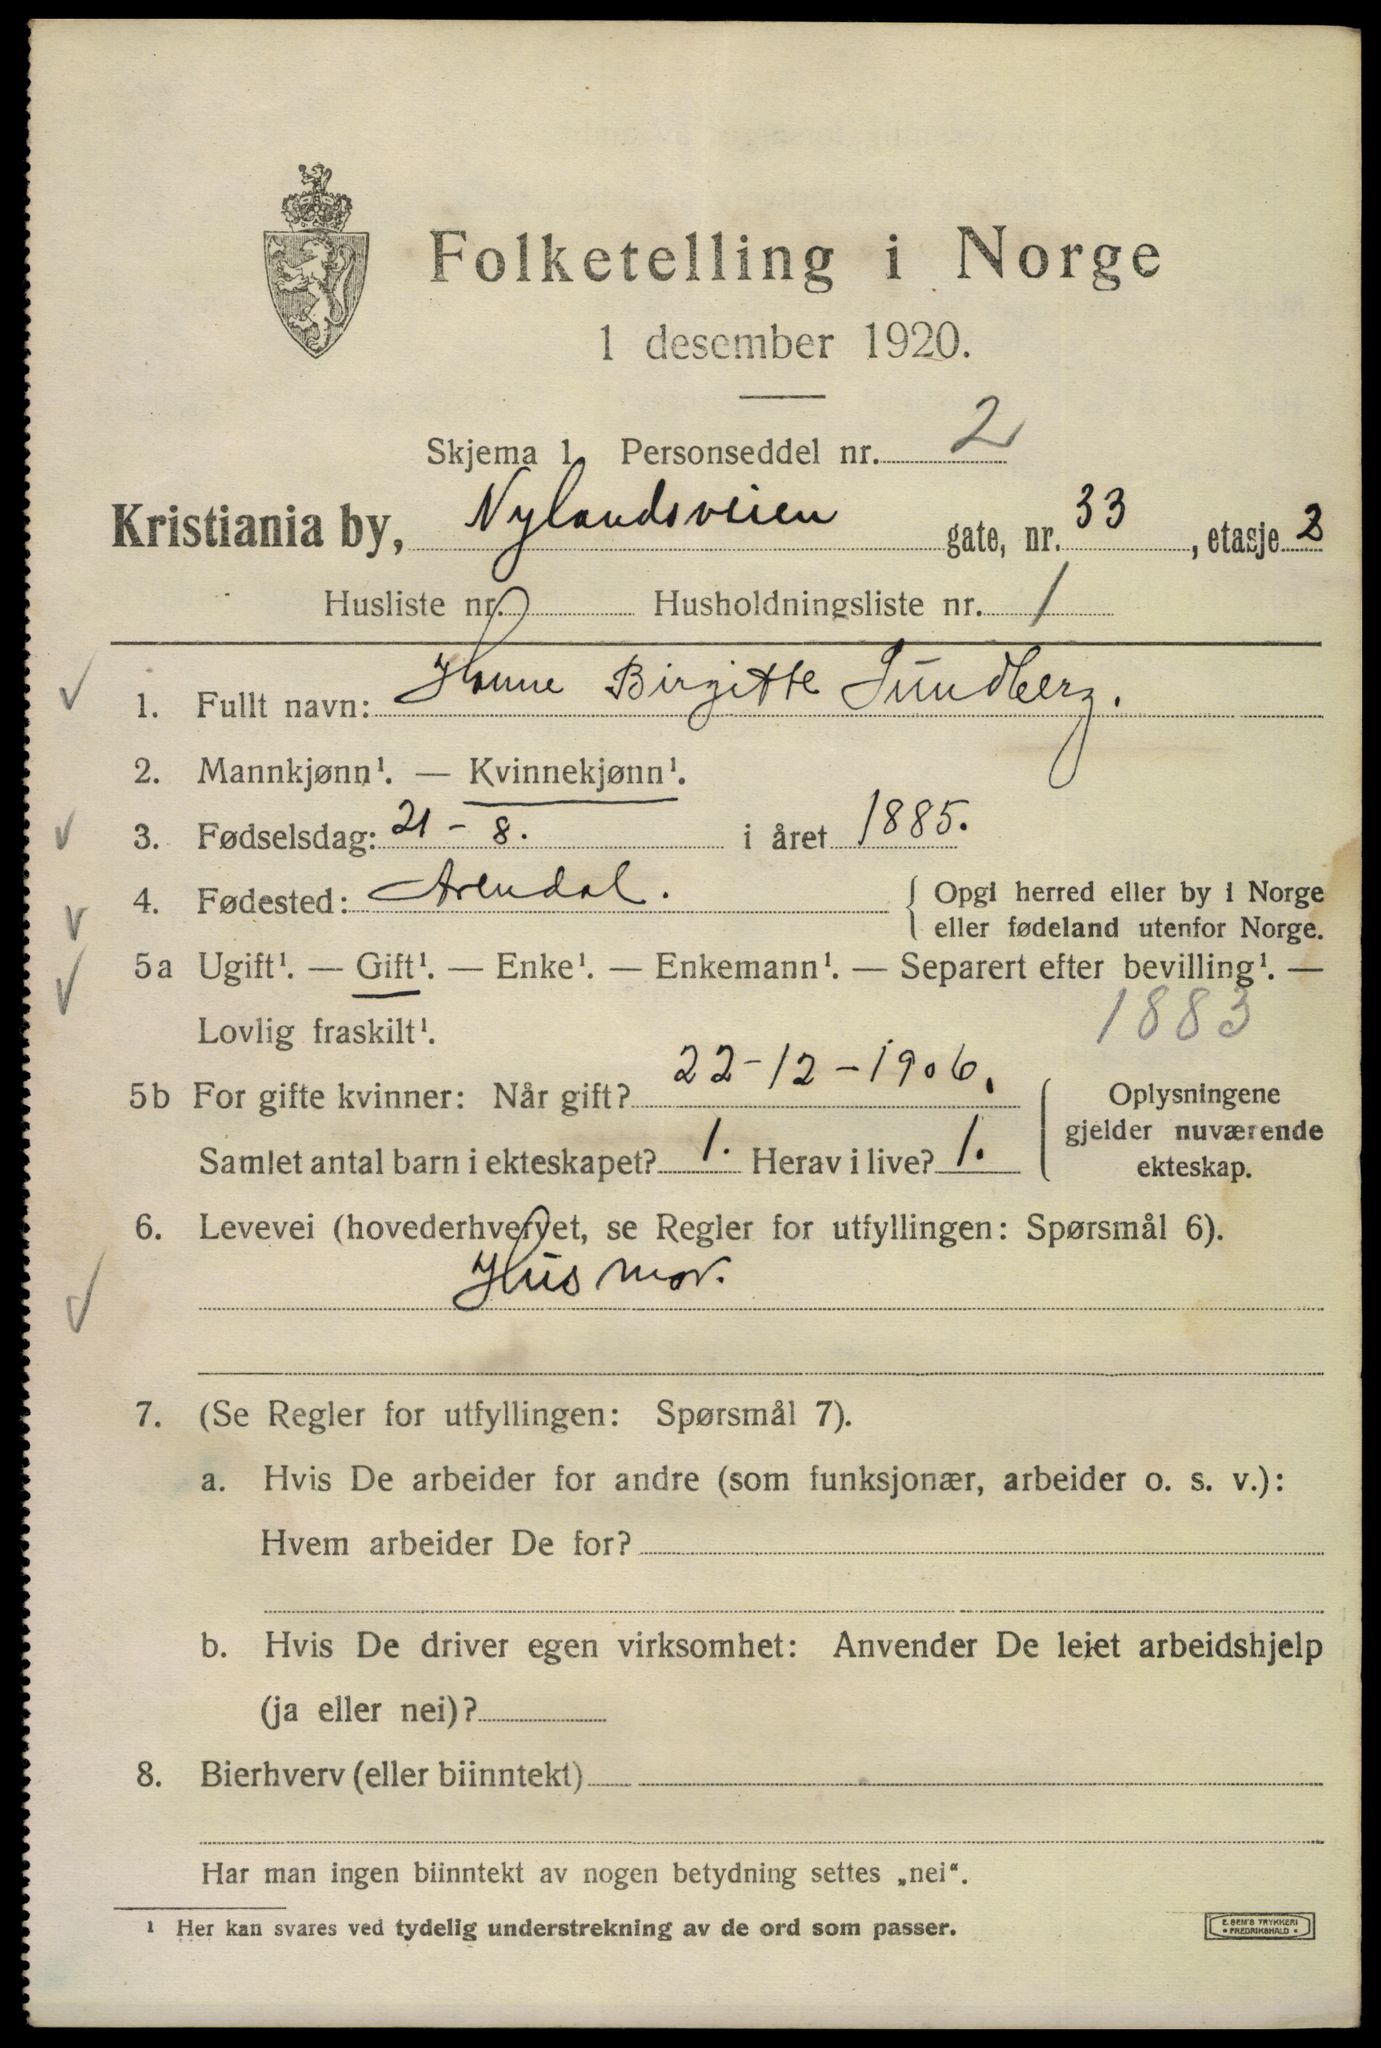 Folketelling i Norge
1 desember 1920.
Skjema 1. Personseddel nr. 2
Kristiania by, Nylandsveien gate, nr. 33, etasje 2
Husliste nr. Husholdningsliste nr. 1
1. Fullt navn: Hanne Birgitte Sundberg.
2. Mannkjønn¹. — Kvinnekjønn¹.
3. Fødselsdag: 21 - 8. i året 1885.
4. Fødested: Arendal. Opgi herred eller by i Norge
eller fødeland utenfor Norge.
5a Ugift¹. — Gift¹. — Enke¹. — Enkemann¹. — Separert efter bevilling¹. —
Lovlig fraskilt¹. 1883
5b For gifte kvinner: Når gift? 22-12-1906. Oplysningene
gjelder nuværende
Samlet antal barn i ekteskapet? 1. Herav i live? 1. ekteskap.
6. Levevei (hovederhvervet, se Regler for utfyllingen: Spørsmål 6).
Husmor.
7. (Se Regler for utfyllingen: Spørsmål 7).
a. Hvis De arbeider for andre (som funksjonær, arbeider o. s. v.):
Hvem arbeider De for?
b. Hvis De driver egen virksomhet: Anvender De leiet arbeidshjelp
(ja eller nei)?
8. Bierhverv (eller biinntekt)
Har man ingen biinntekt av nogen betydning settes „nei“.
¹ Her kan svares ved tydelig understrekning av de ord som passer.
E. SEM'S TRYKKERI
FREDRIKSHALD